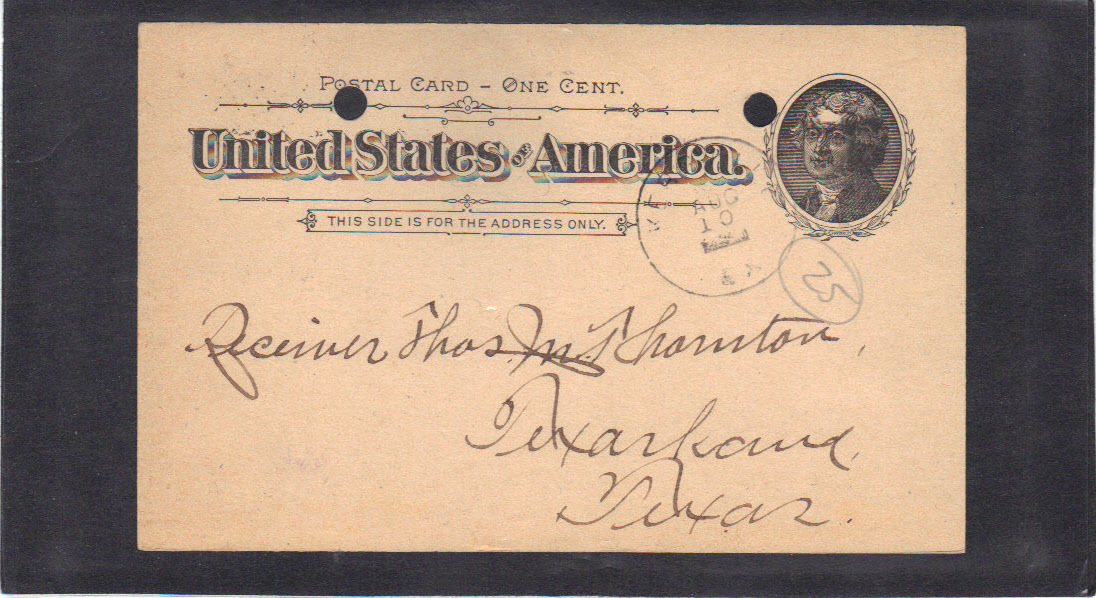 POSTAL CARD – ONE CENT.
United States OF America.
THIS SIDE IS FOR THE ADDRESS ONLY.
AUG
10
25
Receiver Thos. M. Thornton,
Texarkana,
Texas.